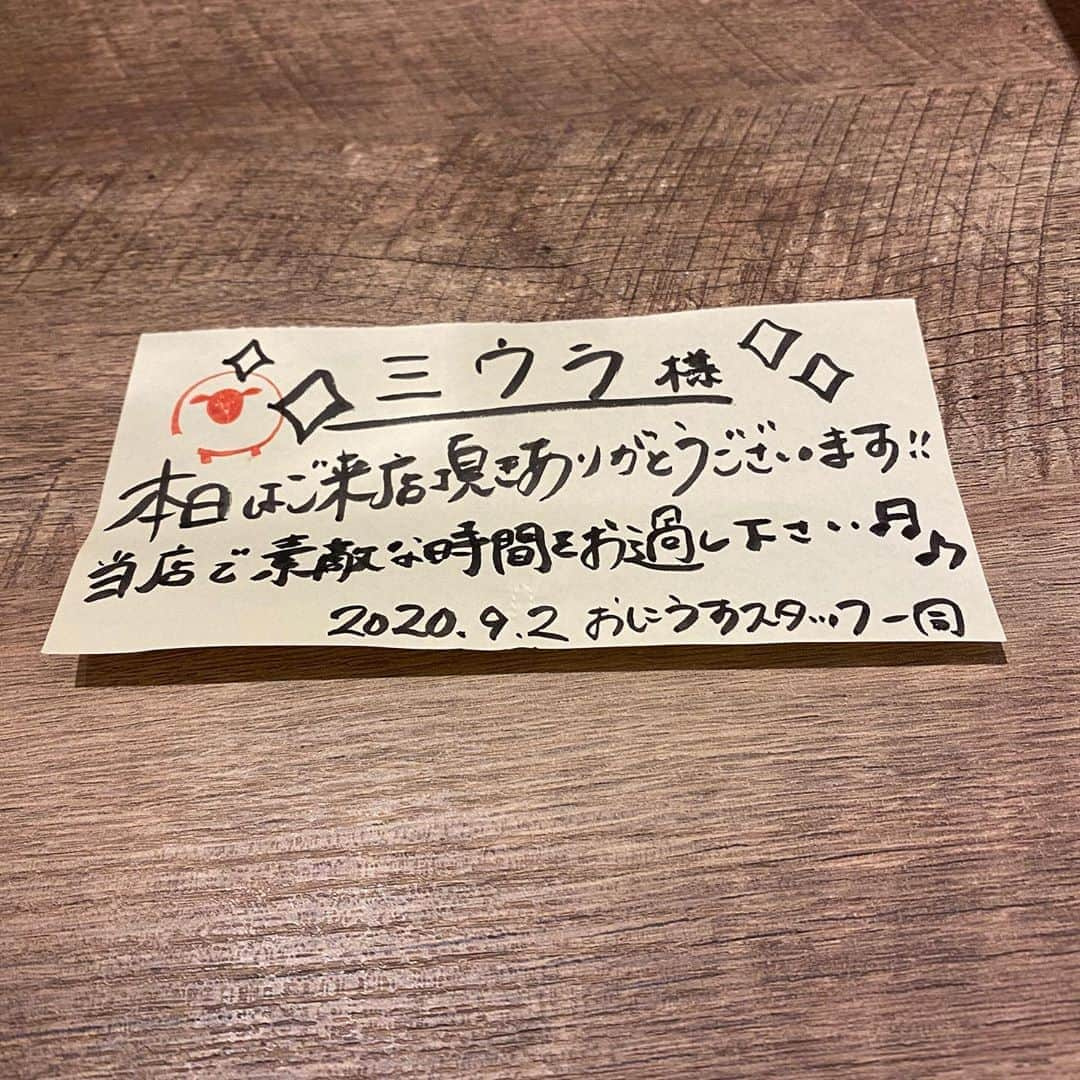 ミウラ様
本日はご来店頂きありがとうございます!!
当店で素敵な時間をお過し下さい♬♪
2020.9.2 おにうすスタッフ一同